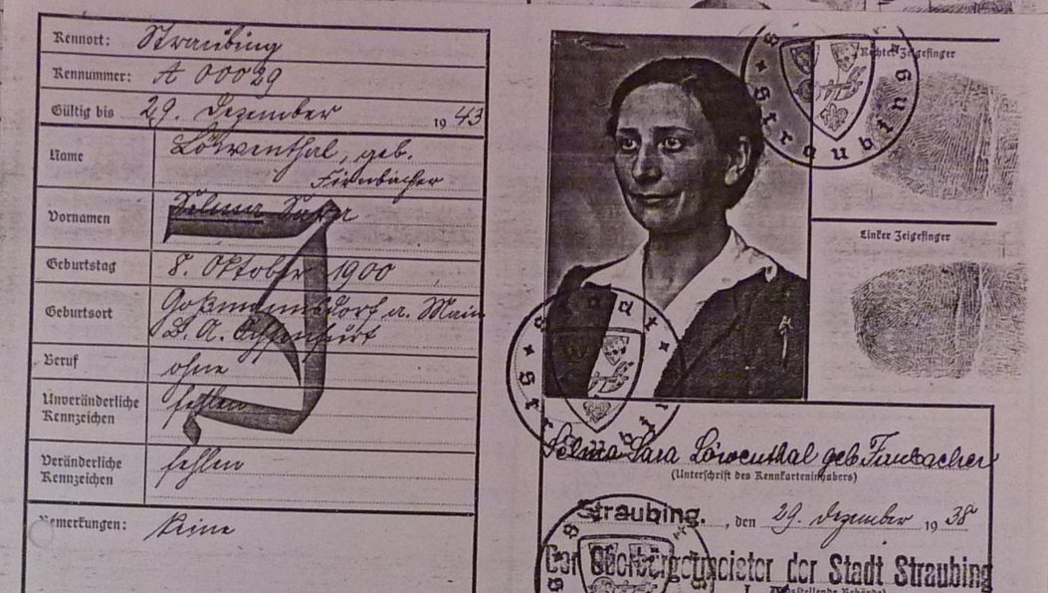 Kennort: Straubing
Kennummer: A 00029
Gültig bis 29. Dezember 1943
Name Löwenthal, geb.
Firnbacher
Vornamen Selma Sara
Geburtstag 8. Oktober 1900
Geburtsort Goßmannsdorf a. Main
B. A. Ochsenfurt
Beruf ohne
Unveränderliche
Kennzeichen fehlen
Veränderliche
Kennzeichen fehlen
Bemerkungen: Keine
J
Stadt Straubing
Rechter Zeigefinger
Linker Zeigefinger
Stadt Straubing
Selma Sara Löwenthal geb. Firnbacher
(Unterschrift des Kennkarteninhabers)
Straubing. , den 29. Dezember 1938
Der Oberbürgermeister der Stadt Straubing
(Ausstellende Behörde)